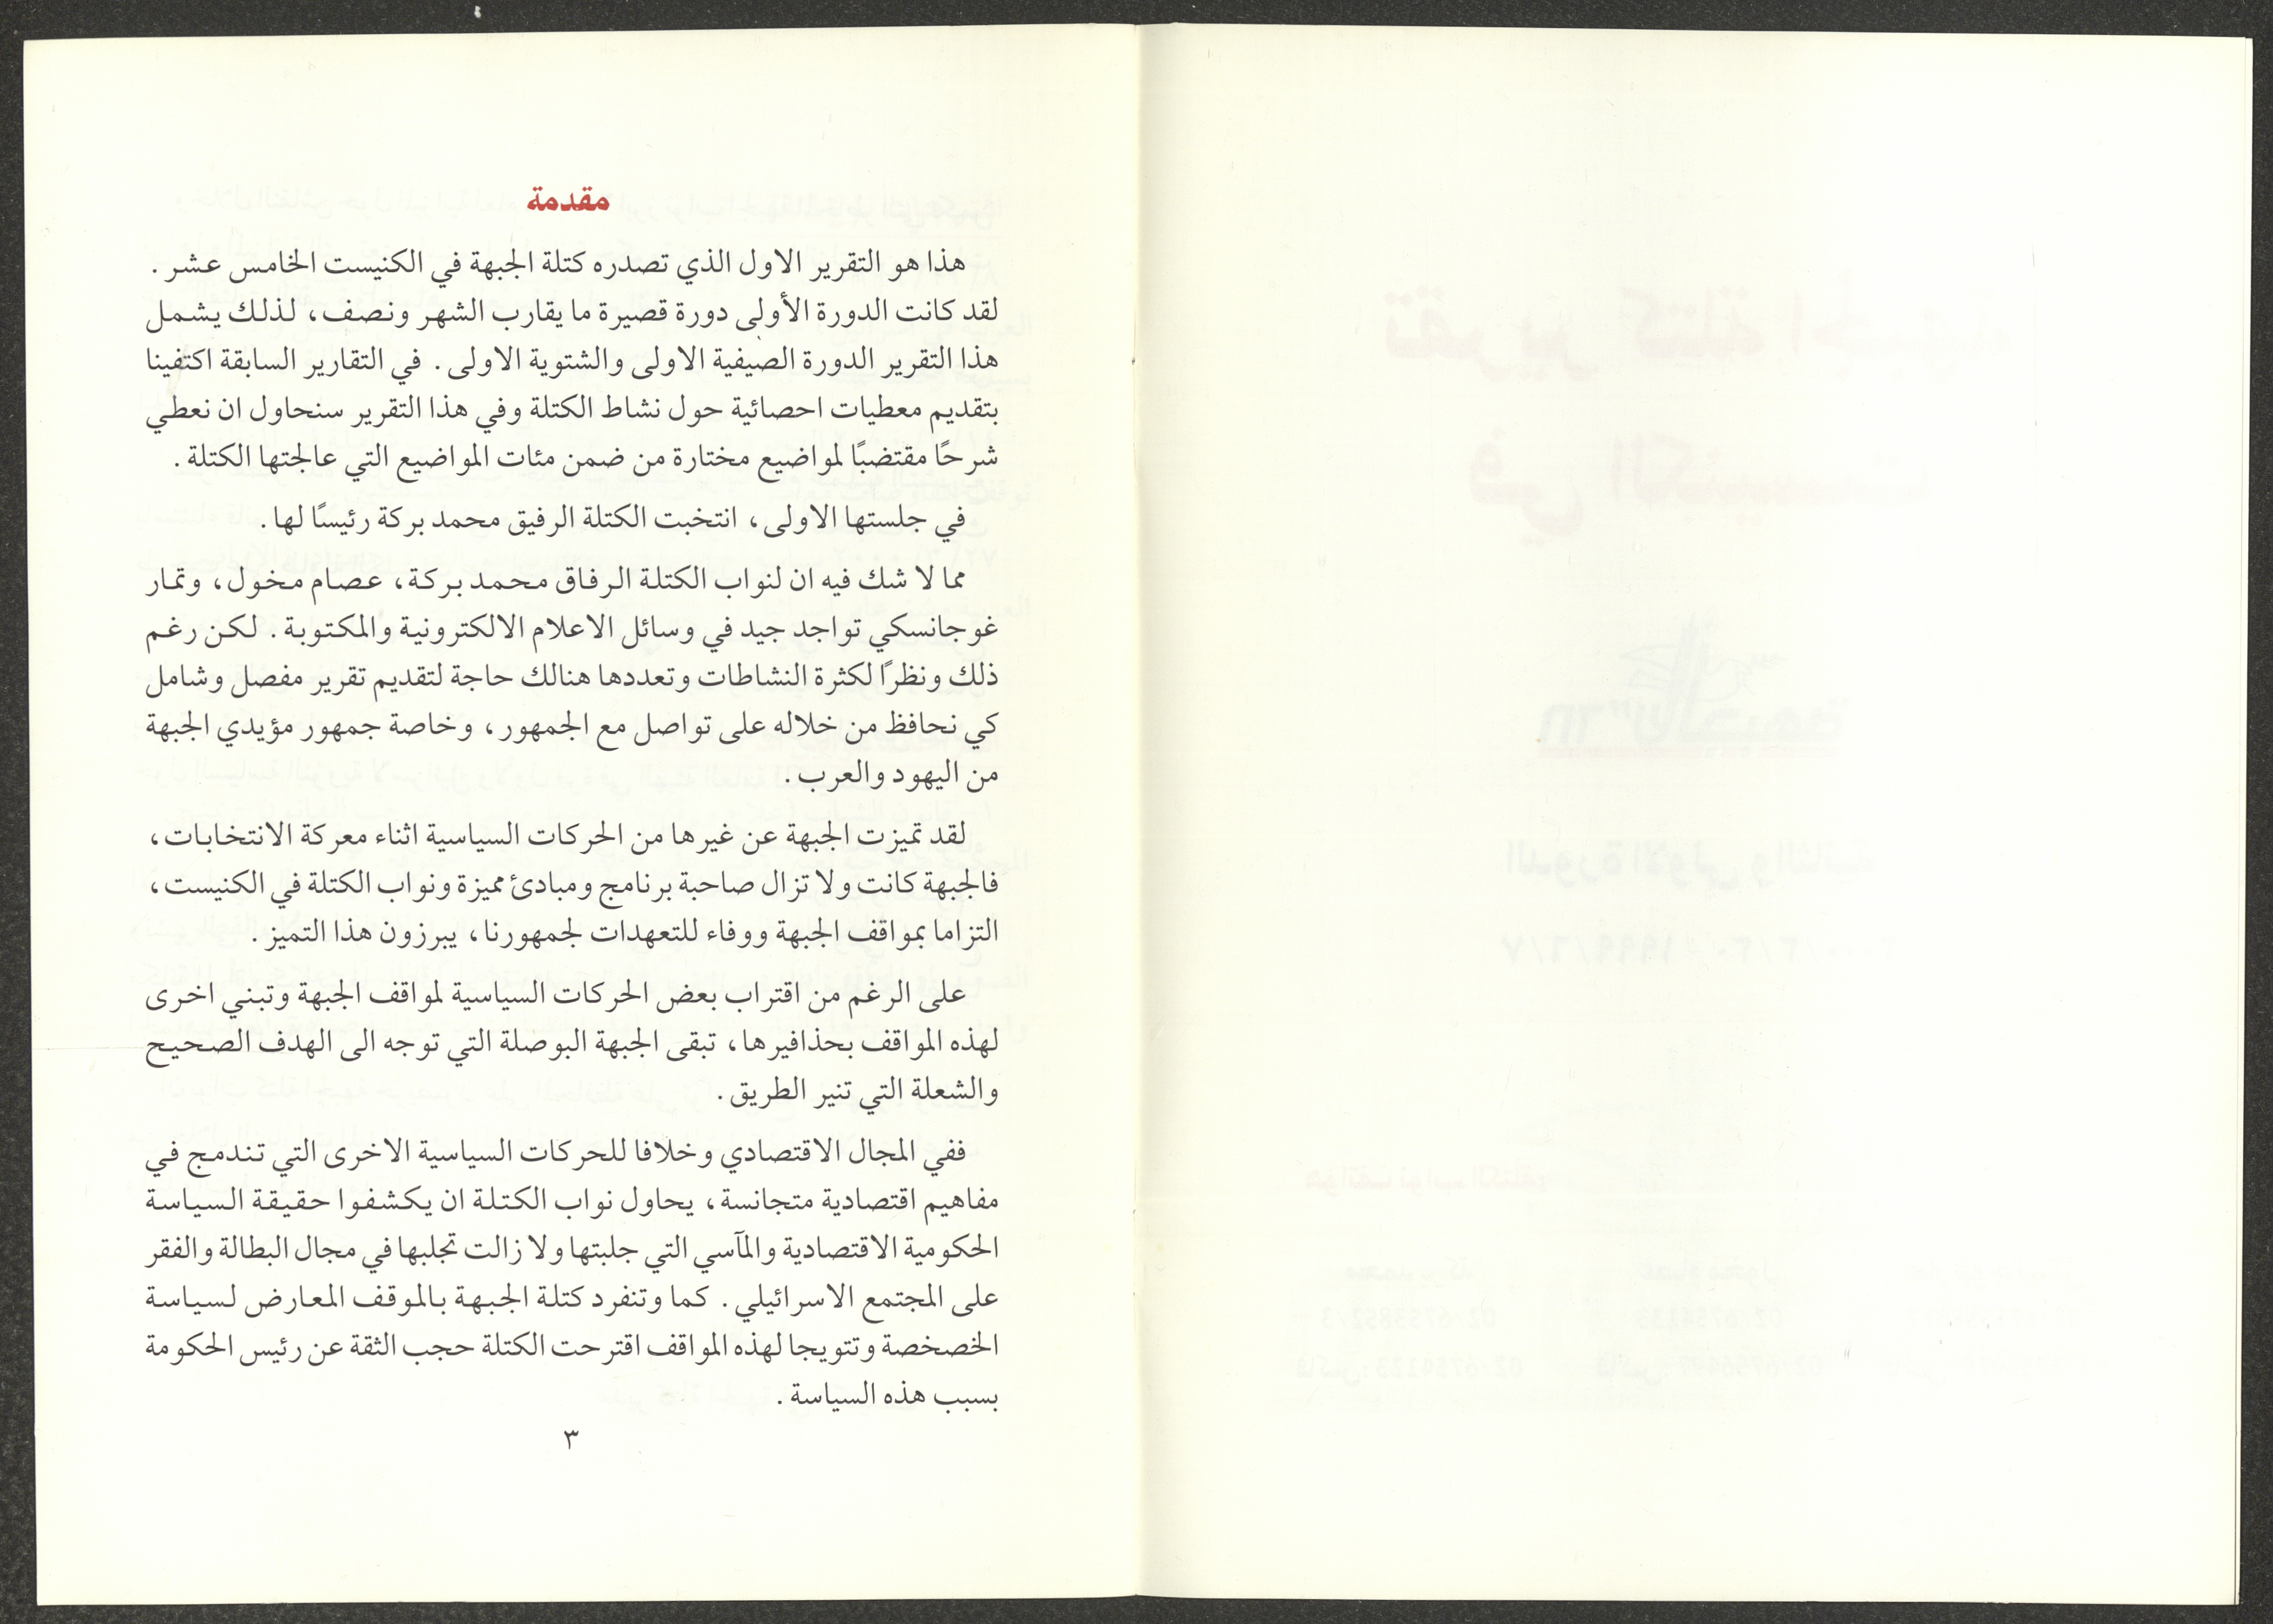 مقدمة
هذا هو التقرير الاول الذي تصدره كتلة الجبهة في الكنيست الخامس عشر.
لقد كانت الدورة الأولى دورة قصيرة ما يقارب الشهر ونصف، لذلك يشمل
هذا التقرير الدورة الصيفية الاولى والشتوية الاولى. في التقارير السابقة اكتفينا
بتقديم معطيات احصائية حول نشاط الكتلة وفي هذا التقرير سنحاول ان نعطي
شرحًا مقتضبًا لمواضيع مختارة من ضمن مئات المواضيع التي عالجتها الكتلة.
في جلستها الاولى، انتخبت الكتلة الرفيق محمد بركة رئيسًا لها.
مما لا شك فيه ان لنواب الكتلة الرفاق محمد بركة، عصام مخول، وتمار
غوجانسكي تواجد جيد في وسائل الاعلام الالكترونية والمكتوبة. لكن رغم
ذلك ونظرًا لكثرة النشاطات وتعددها هنالك حاجة لتقديم تقرير مفصل وشامل
كي نحافظ من خلاله على تواصل مع الجمهور، وخاصة جمهور مؤيدي الجبهة
من اليهود والعرب.
لقد تميزت الجبهة عن غيرها من الحركات السياسية اثناء معركة الانتخابات،
فالجبهة كانت ولا تزال صاحبة برنامج ومبادئ مميزة ونواب الكتلة في الكنيست،
التزاما بمواقف الجبهة ووفاء للتعهدات لجمهورنا، يبرزون هذا التميز.
على الرغم من اقتراب بعض الحركات السياسية لمواقف الجبهة وتبني اخرى
لهذه المواقف بحذافيرها، تبقى الجبهة البوصلة التي توجه الى الهدف الصحيح
والشعلة التي تنير الطريق.
ففي المجال الاقتصادي وخلافا للحركات السياسية الاخرى التي تندمج في
مفاهيم اقتصادية متجانسة، يحاول نواب الكتلة ان يكشفوا حقيقة السياسة
الحكومية الاقتصادية والمآسي التي جلبتها ولا زالت تجلبها في مجال البطالة والفقر
على المجتمع الاسرائيلي. كما وتنفرد كتلة الجبهة بالموقف المعارض لسياسة
الخصخصة وتتويجا لهذه المواقف اقترحت الكتلة حجب الثقة عن رئيس الحكومة
بسبب هذه السياسة.
٣